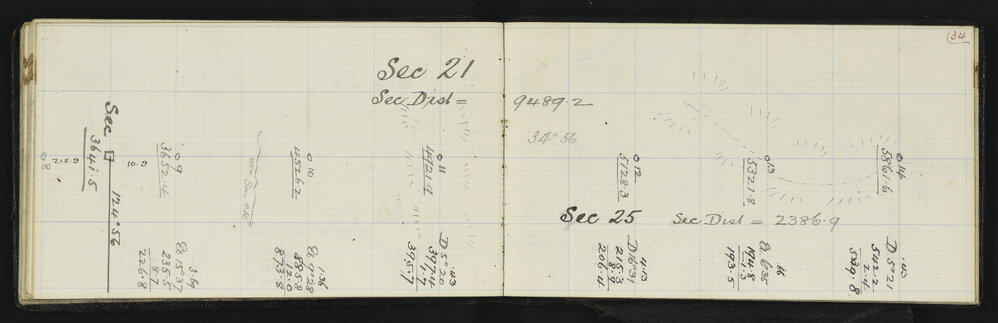 34
Sec 21
Sec Dist = 9489.2
34° 56
Sec
3641.5
124° 56
8
215.9
10.9
9
3652.4
10
4526.2
11
4921.9
12
5128.3
13
5321.8
14
5861.6
Sec 25 Sec Dist = 2386.9
235.5
8.7
226.8
E 9° 28
885.8
12.0
873.8
.43
D 5° 20
397.4
1.7
395.7
4.13
D 16° 31
215.3
8.9
206.4
E 6° 35
194.8
1.3
193.5
.43
D 5° 21
542.2
2.4
539.8